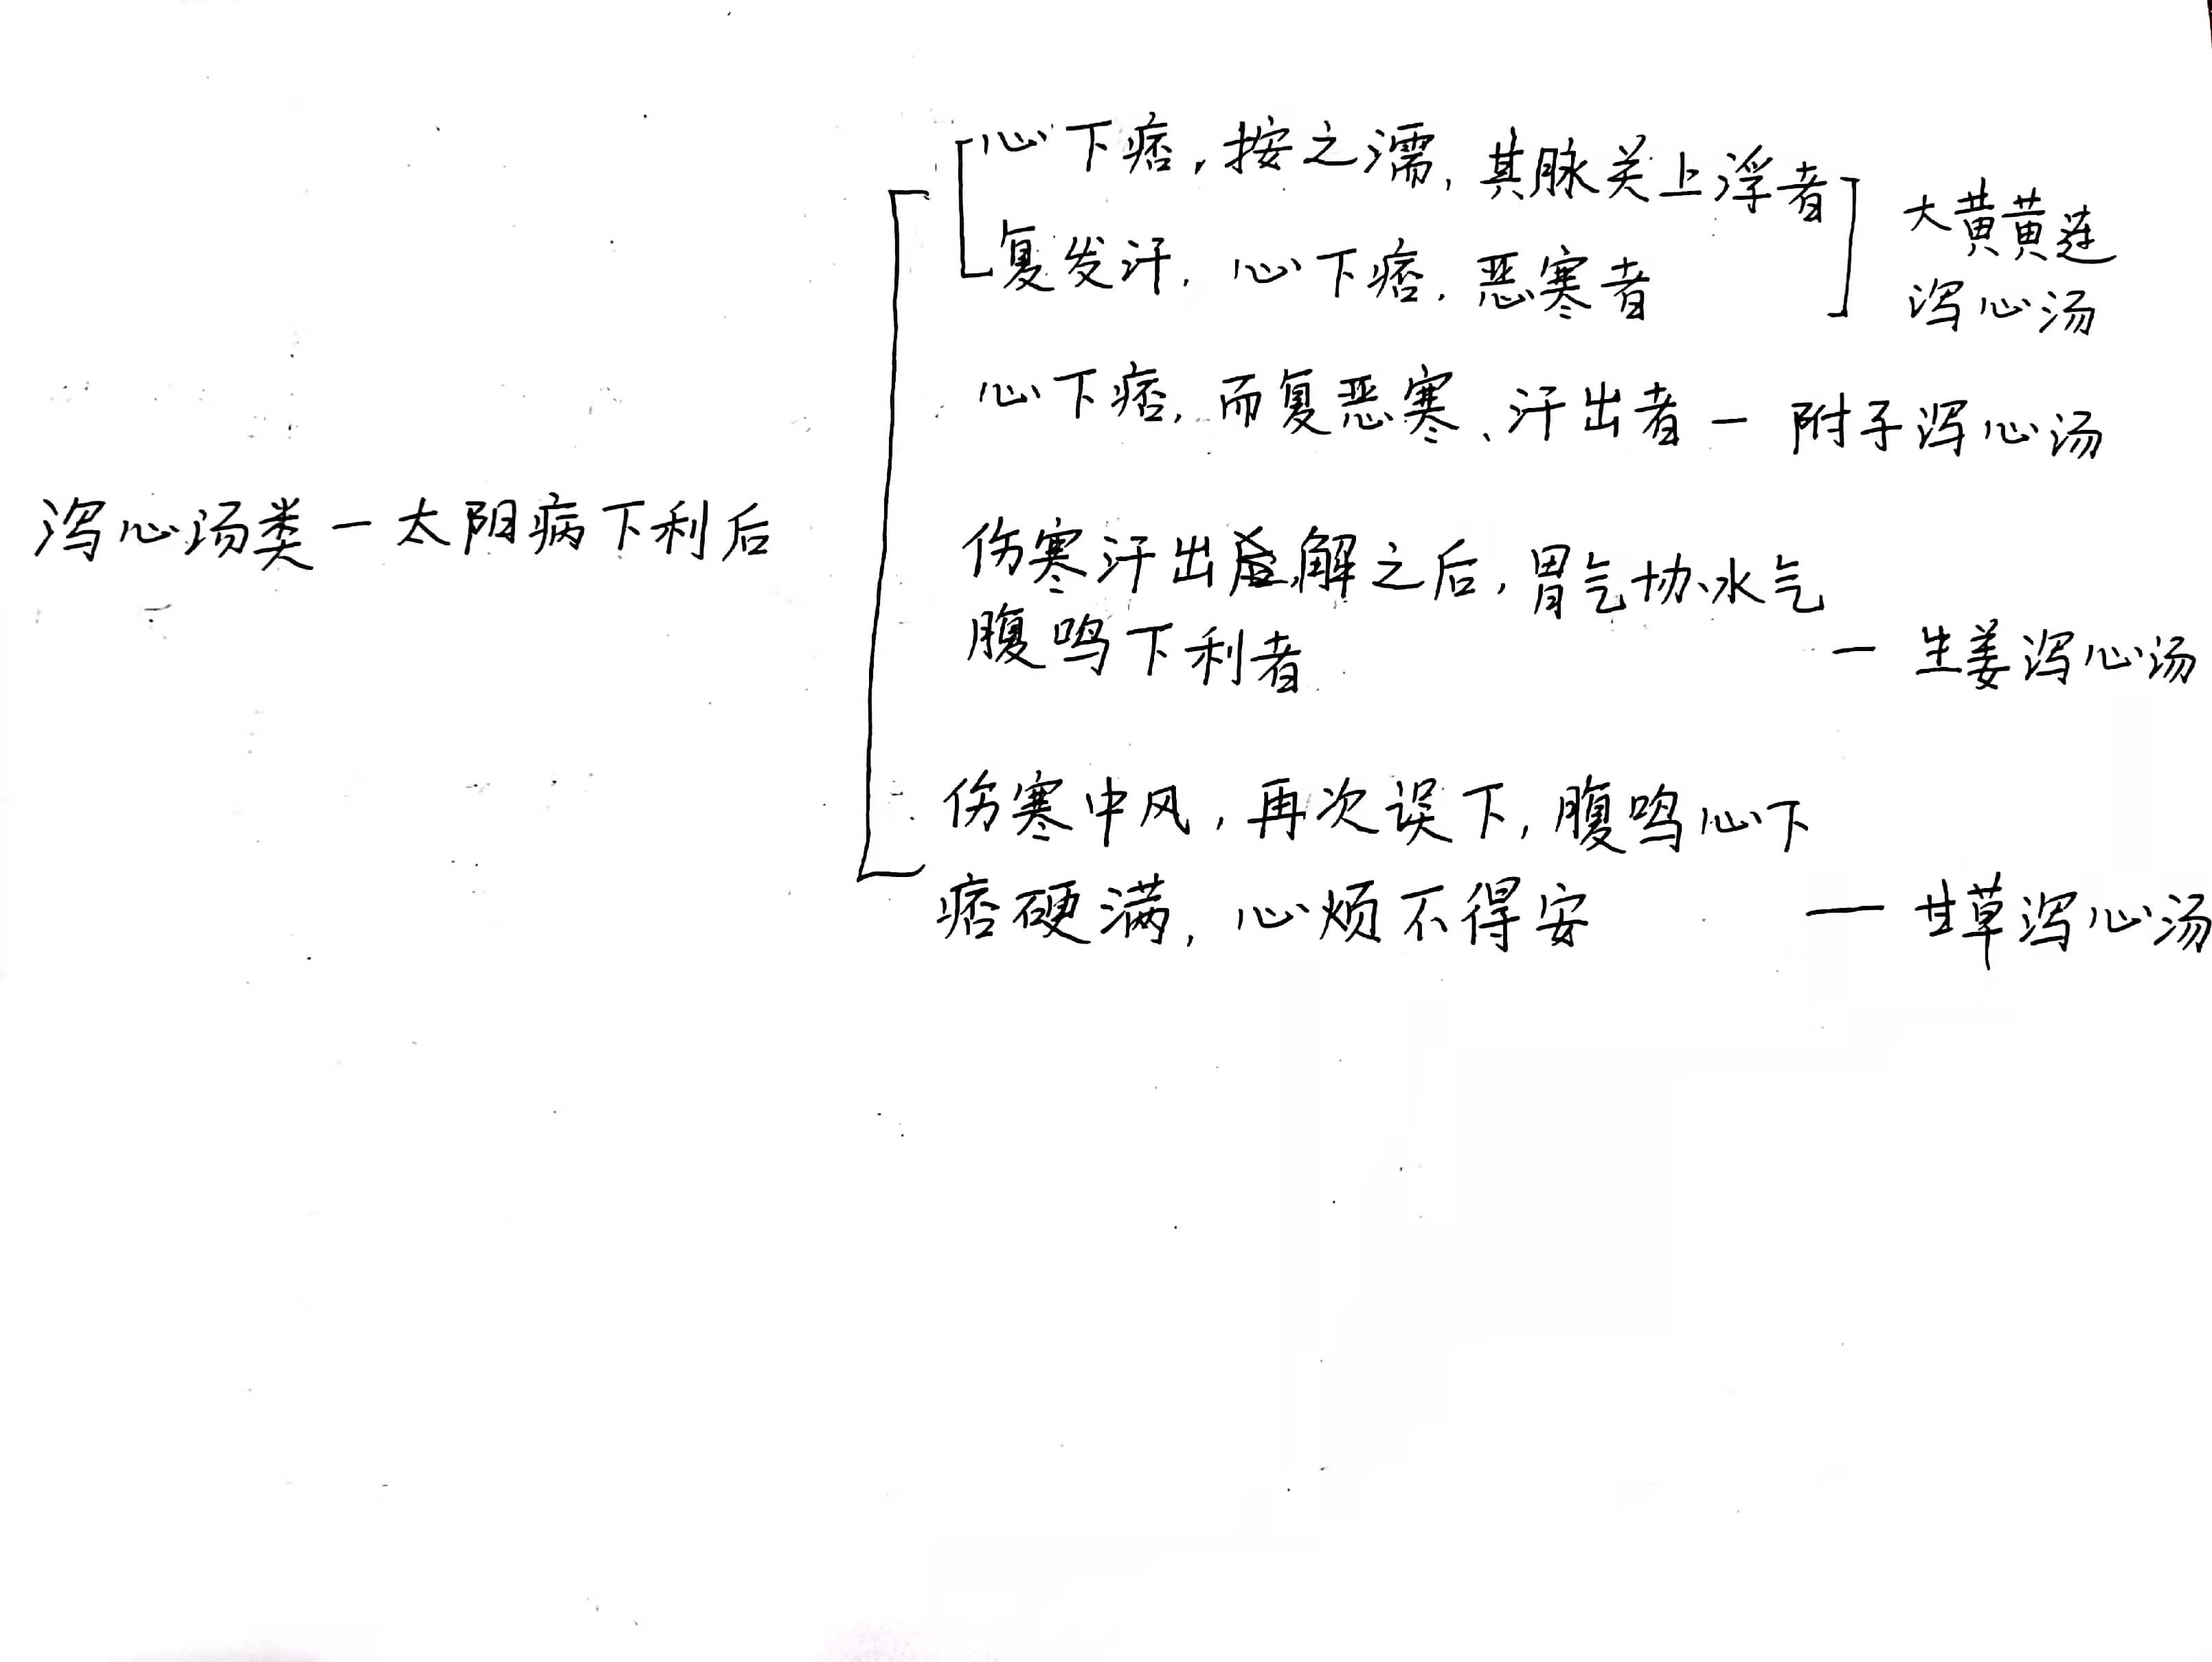 心下痞,按之濡,其脉关上浮者
复发汗,心下痞,恶寒者
大黄黄连
泻心汤
心下痞,而复恶寒、汗出者 — 附子泻心汤
泻心汤类 — 太阴病下利后
伤寒汗出,解之后,胃气协水气
腹鸣下利者
— 生姜泻心汤
伤寒中风,再次误下,腹鸣心下
痞硬满,心烦不得安 — 甘草泻心汤